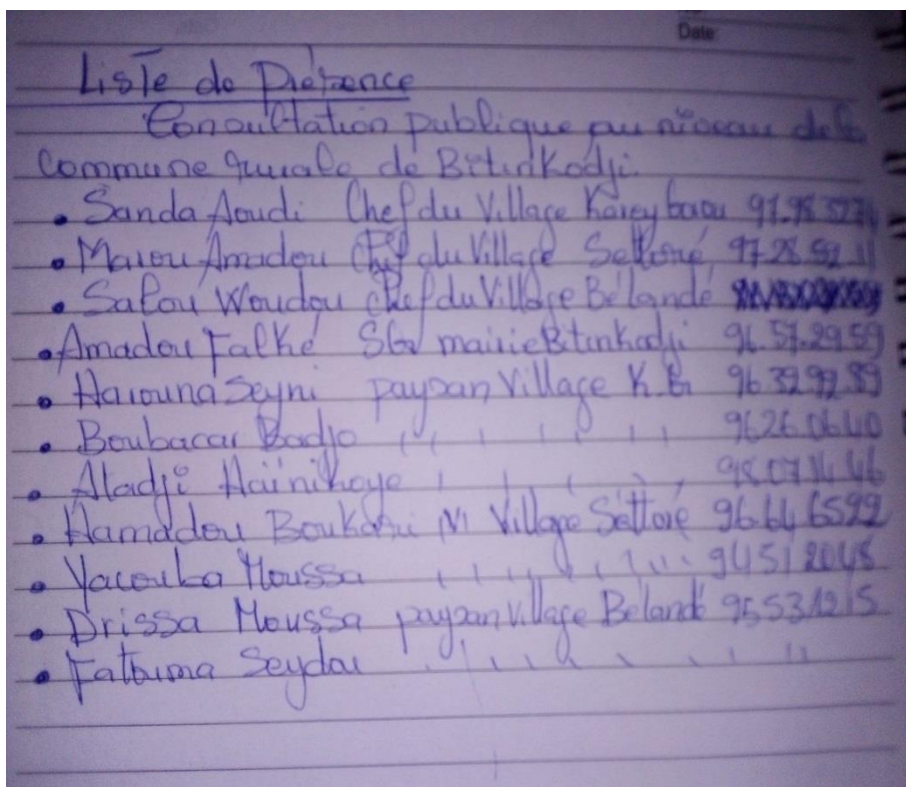 Date:
Liste de Présence
Consultation publique au niveau de la
Commune rurale de Bitinkodji.
• Sanda Aoudi Chef du Village Koreybaou 97.98
• Marou Amadou Chef du Village Settoré 97.28.52.11
• Salou Woudou chef du Village Bélandé
• Amadou Falké SG mairie Bitinkodji 96.57.29.59
• Harouna Seyni paysan Village K.B 96 32 92 89
• Boubacar Badjo ,, , , , , , 96 26 06 40
• Aladji Haïnikoye , , , , , 98 07 14 46
• Hamadou Boukari Village Settoré 96 64 65 92
• Yacouba Moussa , , , , , , , 94 51 20 48
• Drissa Moussa paysan village Bélandé 95 53 12 15
• Fatouma Seydou , , , , , , , ,